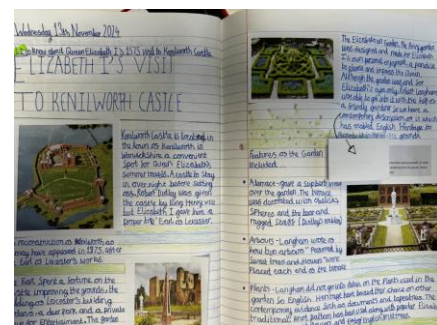 Wednesday 13th November 2024
to know about Queen Elizabeth I's 1575 visit to Kenilworth Castle
ELIZABETH I'S VISIT
TO KENILWORTH CASTLE
Kenilworth Castle is located in
the town of Kenilworth in
Warwickshire, a convenient
spot for Queen Elizabeth's
Summer
over night before setting
off. Robert Dudley was given
the castle by King Henry VIII
but Elizabeth I gave him a
proper title "Earl of Leicester."
reconstruction of Kenilworth as
may have appeared in 1575, after
Earl of Leicester's works.
Earl spent a fortune on the
site, improving the grounds, the
building of Leicester's building
a deer park and a private
Entertainment. The garden
The Elizabethan Garden, the
was designed and made for Elizabeth
I's own personal enjoyment, a paradise
to please and impress the Queen.
Although the garden was just for
Elizabeth's eyes only, Robert Langham
was able to get into it with the help of
a friendly gardener so we have a
contemporary description of it which
has enabled English Heritage to
Features of the Garden
included...
A terrace - gave a
over the garden. The terrace
was decorated with obelisks,
spheres and the bear and
ragged staff (Dudley's emblem)
Arbours - Langham wrote of
how two arbours "
sweet trees and flowers" were
placed each end of the terrace
Plants - Langham did not go into detail on the plants used in the
garden so English Heritage have based their choice on other
contemporary evidence such as documents and tapestries. The
traditional knot pattern has been used along with popular Elizabethan